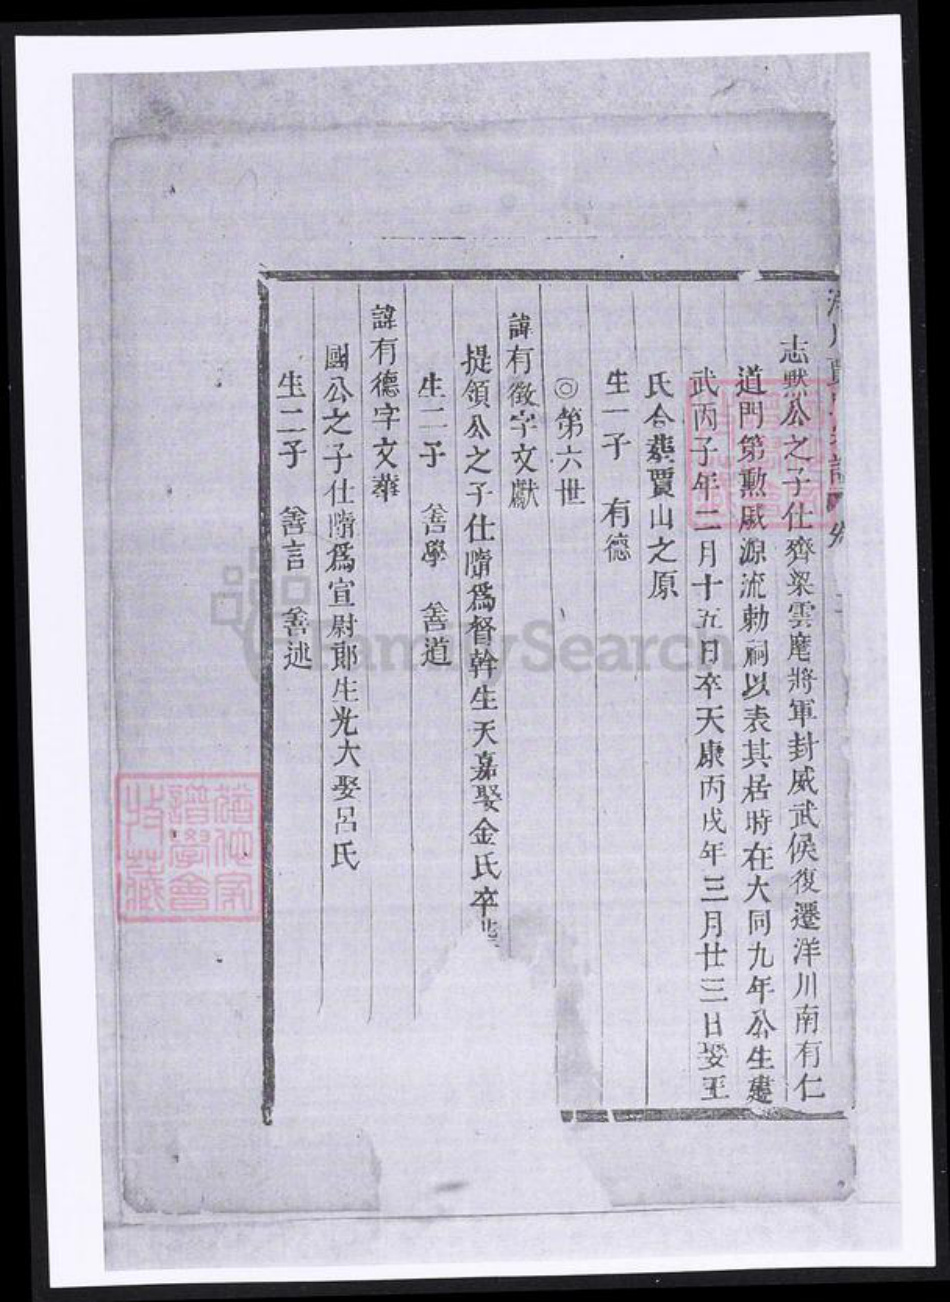 志默公之子仕齊梁雲麾將軍封威武侯復遷洋川南有仁
道門第勲戚源流勅祠以表其居時在大同九年公生建
武丙子年二月十五日卒天康丙戌年三月廿三日娶王
氏合葬賈山之原
生一子 有德
◎第六世
諱有徵字文獻
提領公之子仕隋爲督幹生天嘉娶金氏卒葬
生二子 善學 善道
諱有德字文華
國公之子仕隋爲宣尉郎生光大娶呂氏
生二子 善言 善述
譜學會
收藏
FamilySearch